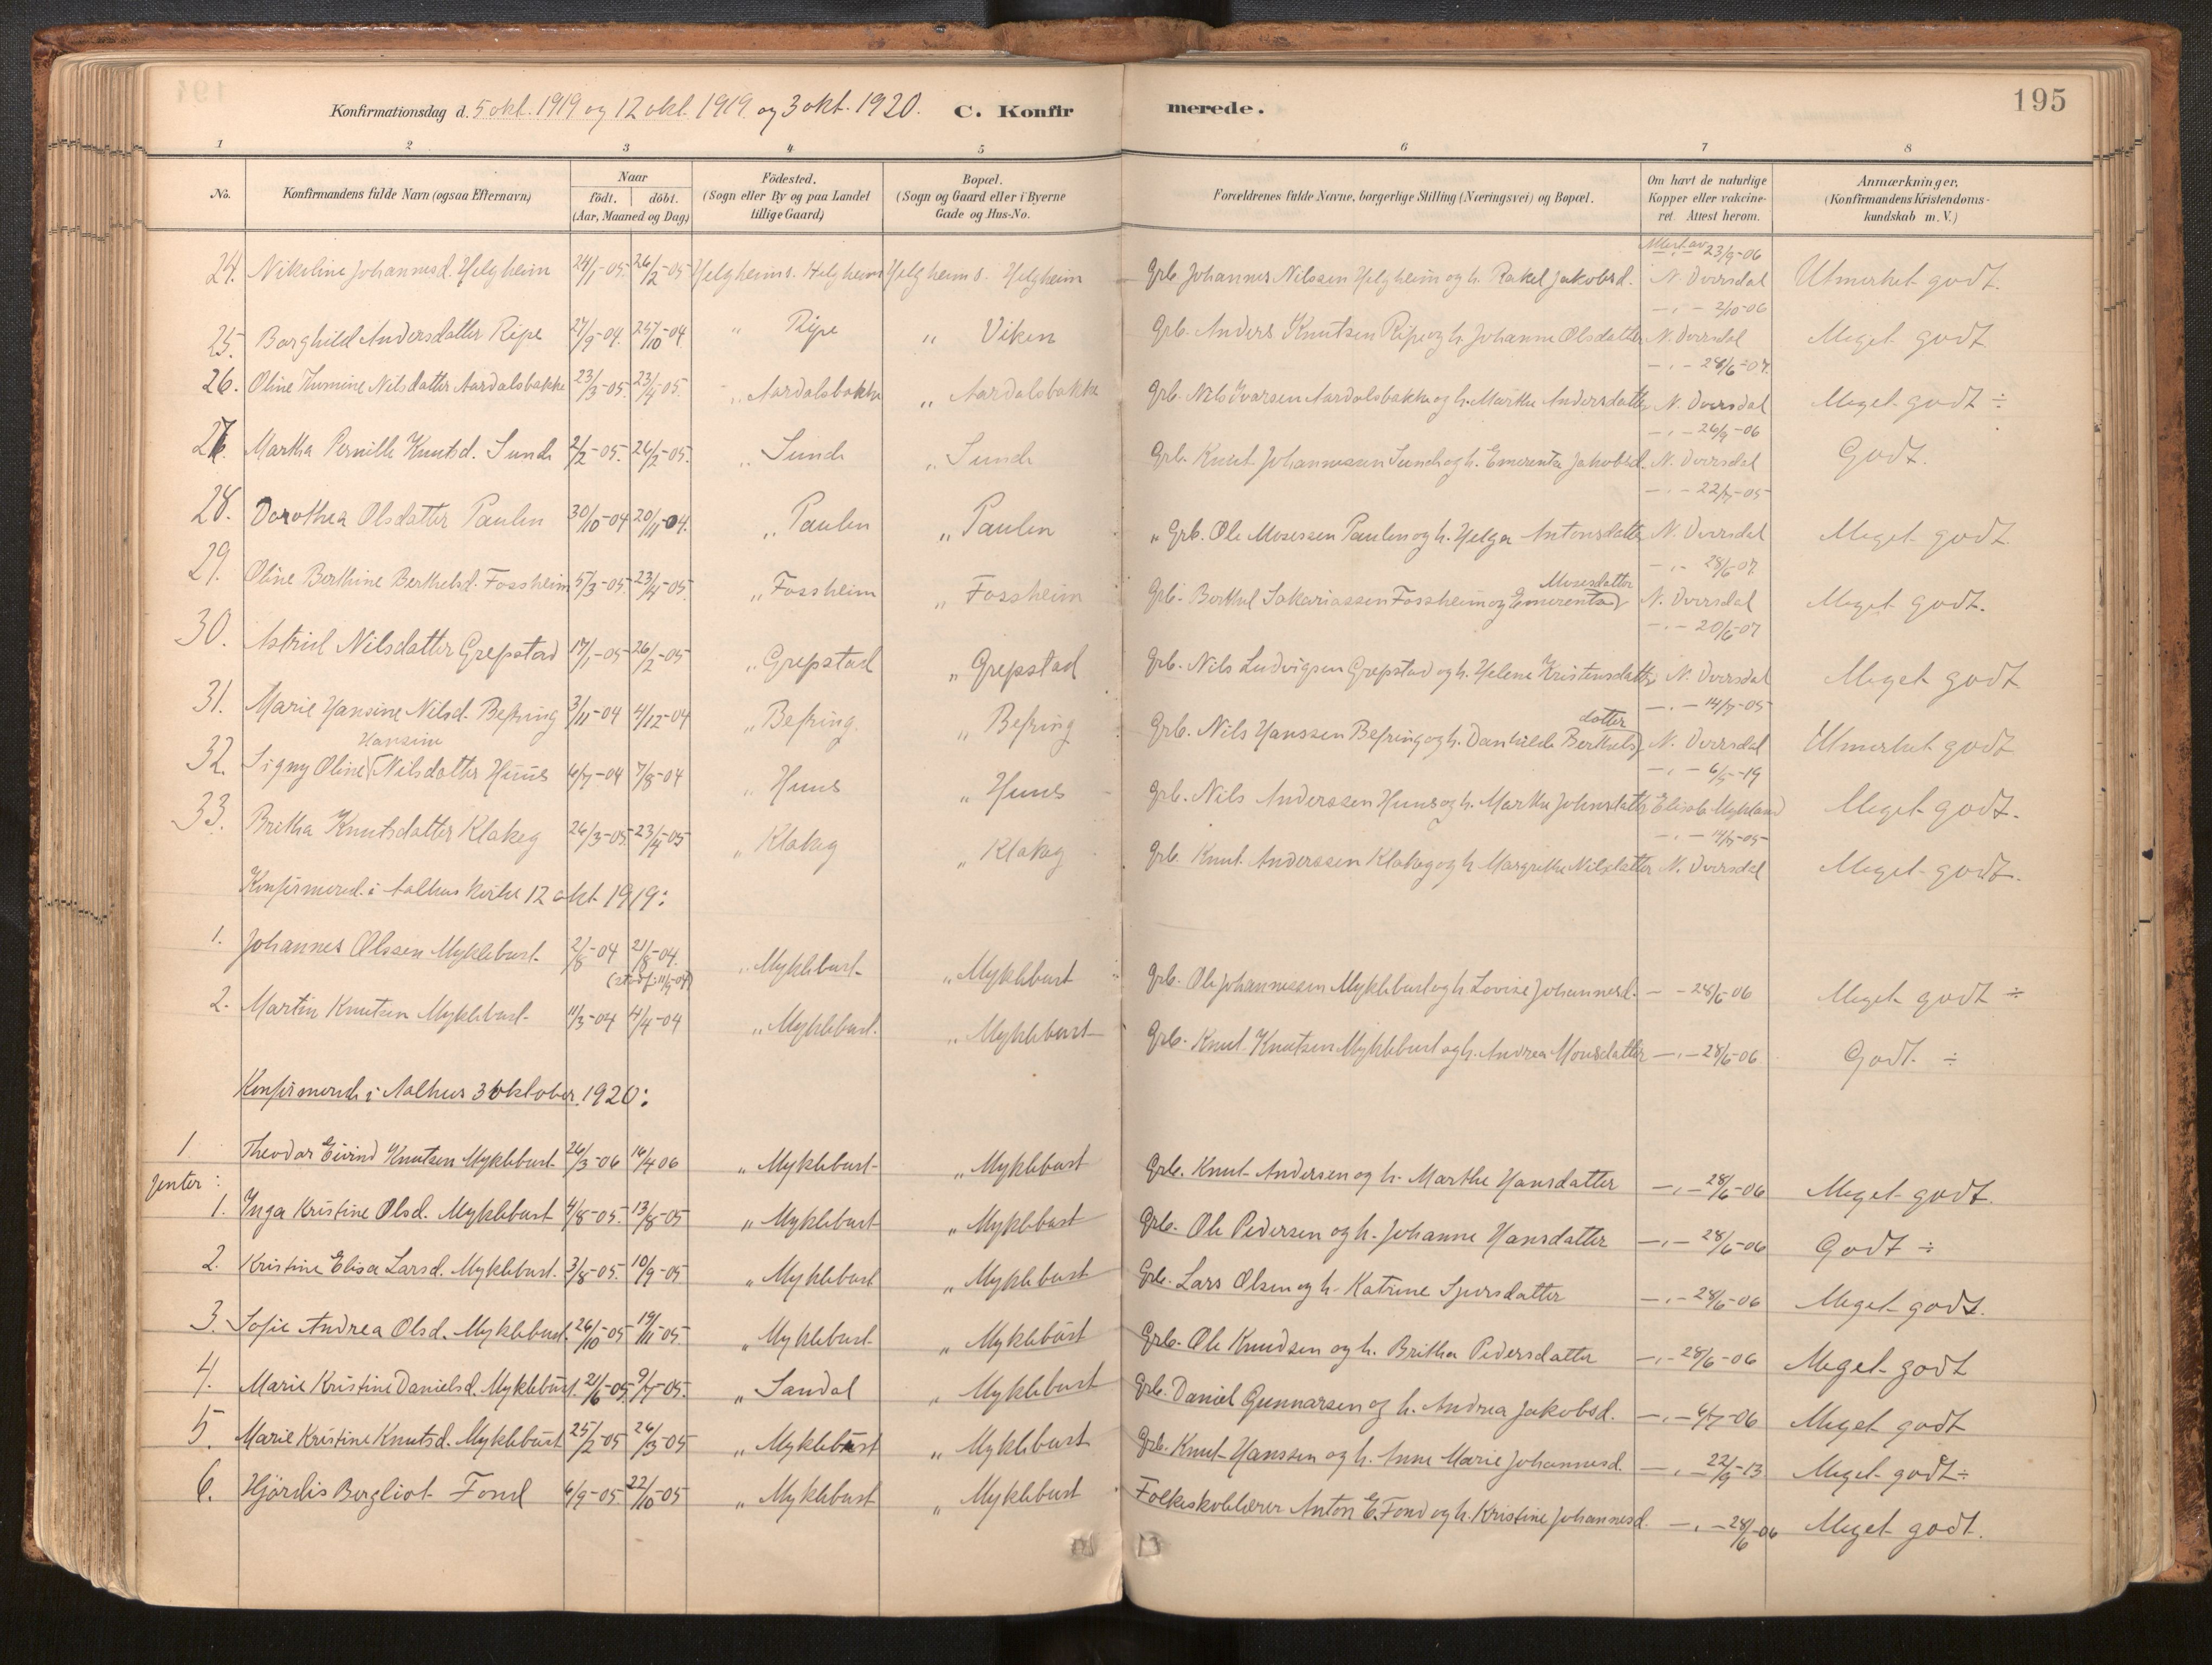 Konfirmationsdag d. 5 okt. 1919 og 12 okt. 1919 og 3 okt. 1920. C. Konfirmerede. 195
1 2 3 4 5 6 7 8
No. Konfirmandens fulde Navn (ogsaa Efternavn) Naar født. døbt. (Aar, Maaned og Dag) Födested. (Sogn eller By og paa Landet tillige Gaard) Bopæl. (Sogn og Gaard eller i Byerne Gade og Hus-No. Forældrenes fulde Navne, borgerlige Stilling (Næringsvei) og Bopæl. Om havt de naturlige Kopper eller vakcineret. Attest herom. Anmærkninger. (Konfirmandens Kristendomskundskab m. V.)
24. Nikoline Johannesd. Helgheim 24/1-05. 26/2-05 Helgheim s. Helgheim Helgheim s. Helgheim Grb. Johannes Nilssen Helgheim og h. Rakel Jakobsd. Attest av 23/9-06 N. Dversdal Utmerket godt.
25. Borghild Andersdatter Ripe 27/9-04. 25/10-04. " Ripe " Viken Grb. Anders Knutsen Ripe og h. Johanne Olsdatter -"- 2/10-06 N. Dversdal Meget godt
26. Oline Thomine Nilsdatter Aardalsbakke 23/3-05. 23/4-05. " Aardalsbakke " Aardalsbakke Grb. Nils Ivarsen Aardalsbakke og h. Marthe Andersdatter -"- 28/6-07. N. Dversdal Meget godt ÷
27. Martha Pernille Knutsd. Sunde 2/2-05. 26/2-05. " Sunde " Sunde Grb. Knut Johannessen Sunde og h. Emerentse Jakobsd. -"- 26/9-06 N. Dversdal Godt.
28. Dorothea Olsdatter Paulen 30/10-04 20/11-04. " Paulen " Paulen " Grb. Ole Mosessen Paulen og h. Helga Antonsdatter -"- 22/7-05 N. Dversdal Meget godt.
29. Oline Berthine Berthelsd. Fossheim 5/3-05. 23/4-05. " Fossheim " Fossheim Grb. Berthel Sakariassen Fossheim og Emerentse Mosesdatter -"- 28/6 07. N. Dversdal Meget godt.
30. Astrid Nilsdatter Grepstad 17/1-05 26/2-05 " Grepstad " Grepstad Grb. Nils Ludvigsen Grepstad og h. Helene Kristensdatter -"- 20/6-07 N. Dversdal Meget godt
31. Marie Hansine Nilsd. Befring 3/11-04 4/12-04 " Befring. " Befring Grb. Nils Hanssen Befring og h. Danhilde Berthelsdatter -"- 14/7-05 N. Dversdal Utmerket godt
32. Signy Oline Hansine Nilsdatter Huus 6/7-04 7/8-04 " Huus " Huus Grb. Nils Anderssen Huus og h. Marthe Johnsdatter -"- 6/5-19 Elisab. Mykland Meget godt.
33. Britha Knutsdatter Klakeg 26/3-05 23/4-05 " Klakeg " Klakeg Grb. Knut Anderssen Klakeg og h. Margrethe Nilsdatter -"- 14/7-05 N. Dversdal Meget godt.
Konfirmered. i Aalhus kirke 12 okt 1919:
1. Johannes Olssen Myklebust 2/8-04 21/8-04. " Myklebust " Myklebust Grb. Ole Johannessen Myklebust og h. Lovise Johannesd. - - 28/6-06 Meget godt ÷
2. Martin Knutsen Myklebust 11/3-04 4/4-04 " Myklebust. " Myklebust Grb. Knut Knutsen Myklebust og h. Andrea Monsdatter -"- 28/6-06 Godt. ÷
Konfirmerede i Aalhus 3 oktober 1920:
1 Theodor Eivind Knutsen Myklebust 26/3-06 16/4 06 " Myklebust " Myklebust Grb. Knut Andersen og h. Marthe Hansdatter -"- 28/6-06 Meget godt.
Jenter:
1. Inga Kristine Olsd. Myklebust 4/8-05. 13/8-05 " Myklebust " Myklebust Grb. Ole Pedersen og h. Johanne Hansdatter -"- 28/6-06 Godt ÷
2. Kristine Elisa Larsd. Myklebust. 3/8-05. 10/9-05 " Myklebust " Myklebust Grb. Lars Olsen og h. Katrine Sjursdatter -"- 28/6-06 Meget godt.
3. Sofie Andrea Olsd. Myklebust. 26/10-05 19/11-05. " Myklebust " Myklebust Grb. Ole Knudsen og h. Britha Pedersdatter -"- 28/6-06 Meget godt
4. Marie Kristine Danielsd. Myklebust. 21/6-05 9/7-05. " Sandal " Myklebust Grb. Daniel Gunnarsen og h. Andrea Jakobsd. -"- 6/7-06 Meget godt
5. Marie Kristine Knutsd. Myklebust 25/2-05 26/3-05 " Myklebust " Myklebust Grb. Knut Hanssen og h. Anne Marie Johannesd. -"- 22/9-13 Meget godt ÷
6. Hjördis Bergliot Fond 6/9-05 22/10-05 " Myklebust " Myklebust Folkeskolelærer Anton E. Fond og h. Kristine Johannesd. -"- 28/6-06 Meget godt.